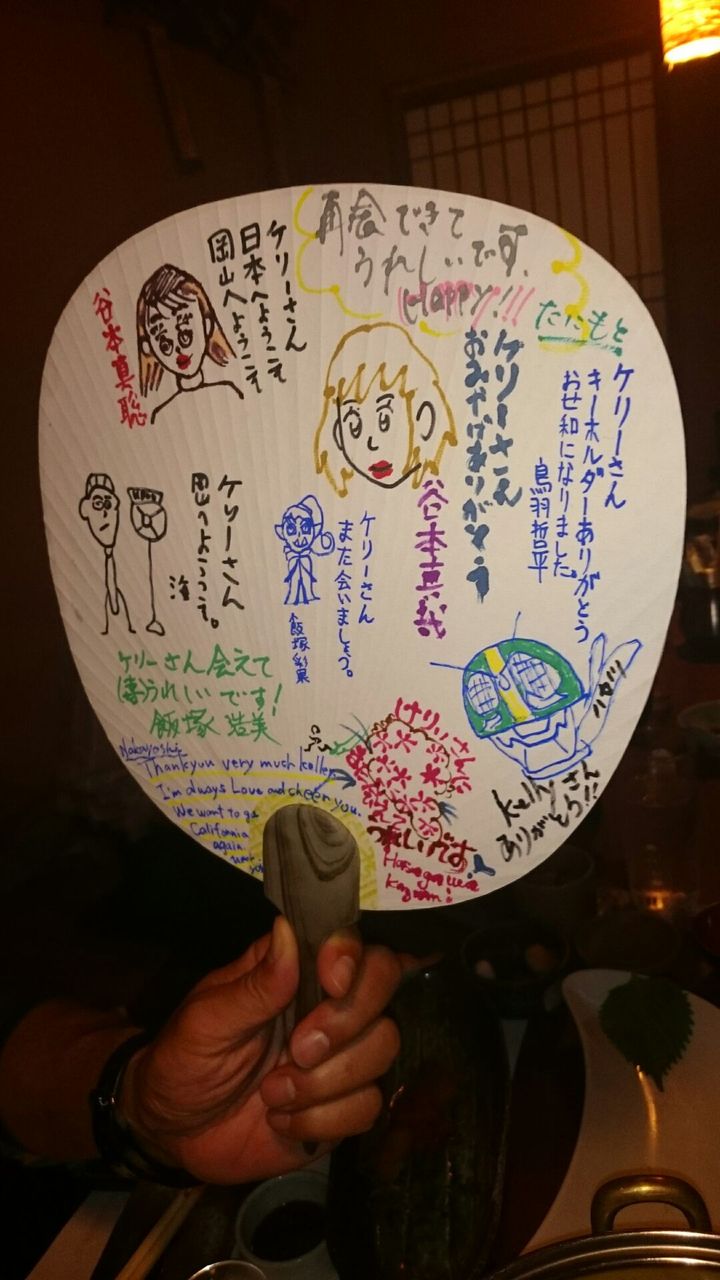 再会できて
うれしいです。
Happy!!!
たにもと
ケリーさん
日本へようこそ
岡山へようこそ
谷本真聡
ケリーさん
おみやげありがとう
谷本真哉
ケリーさん
キーホルダーありがとう
お世和になりました。
鳥羽哲平
ケリーさん
岡山へようこそ。
ケリーさん
また会いましょう。
飯塚彩果
ケリーさん会えて
うれしいです!
飯塚浩美
Nakayoshi
Thankyou very much
I'm always Love and cheer you.
We want to go
California
again.
けりいさん
うれしいです!
Hasegawa
Kelly さん
ありがとう!!